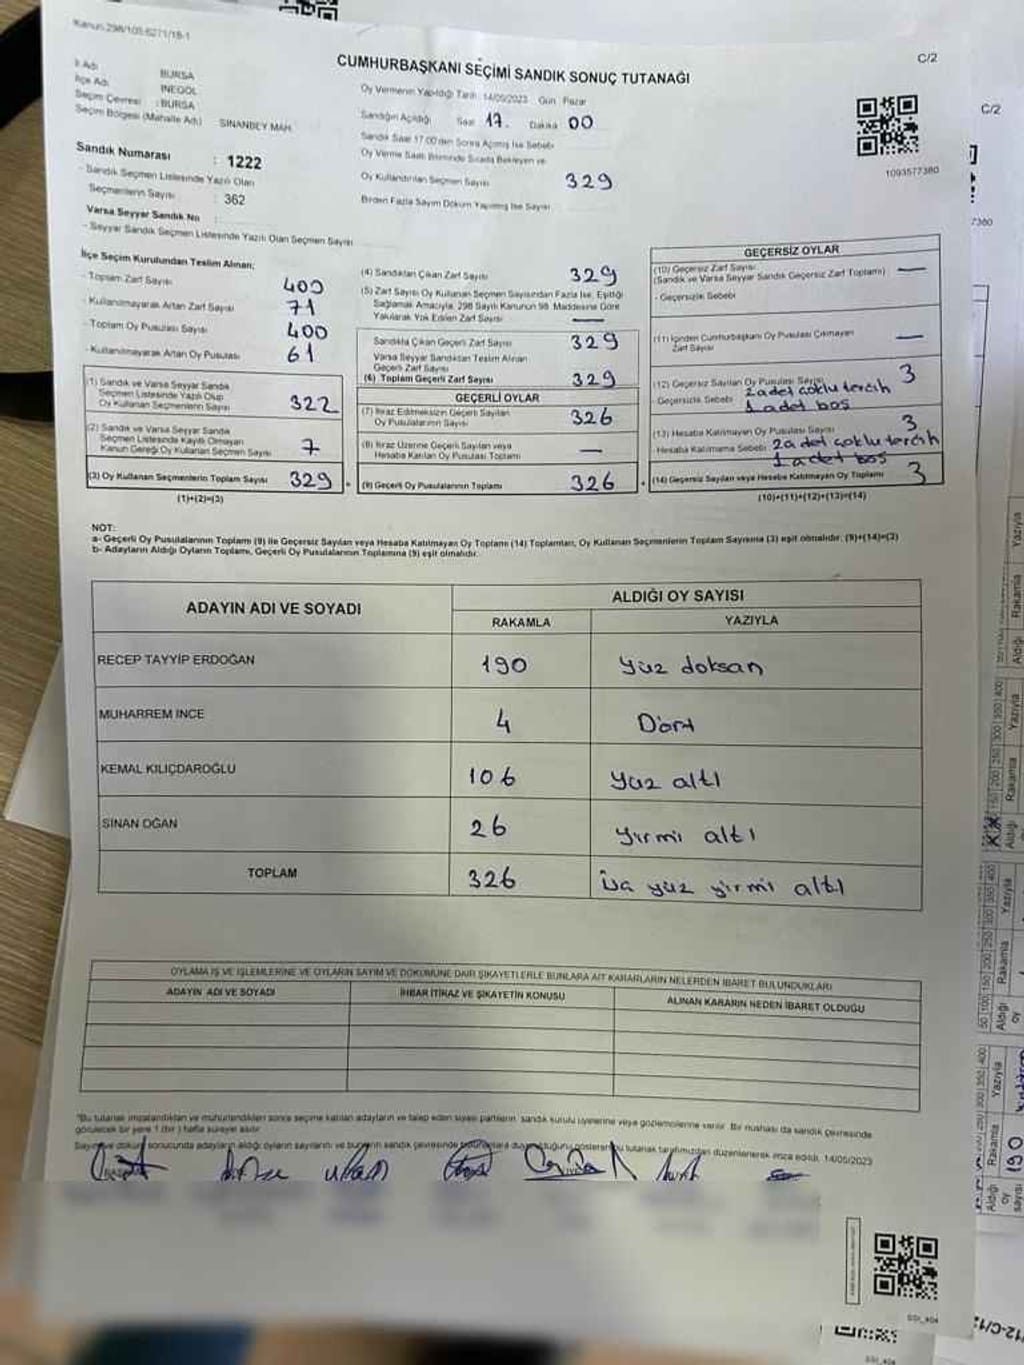 Kanun:298/105;6271/18-1
C/2
CUMHURBAŞKANI SEÇİMİ SANDIK SONUÇ TUTANAĞI
İl Adı BURSA
İlçe Adı INEGÖL
Seçim Çevresi : BURSA
Seçim Bölgesi (Mahalle Adı) SİNANBEY MAH.
Sandık Numarası : 1222
- Sandık Seçmen Listesinde Yazılı Olan
Seçmenlerin Sayısı : 362
Varsa Seyyar Sandık No :
- Seyyar Sandık Seçmen Listesinde Yazılı Olan Seçmen Sayısı
Oy Vermenin Yapıldığı Tarih: 14/05/2023 Gün: Pazar
Sandığın Açıldığı Saat 17. Dakika 00
Sandık Saat 17:00'den Sonra Açılmış İse Sebebi
Oy Verme Saati Bitiminde Sırada Bekleyen ve
Oy Kullandırılan Seçmen Sayısı 329
Birden Fazla Sayım Döküm Yapılmış İse Sayısı
1093577380
İlçe Seçim Kurulundan Teslim Alınan;
- Toplam Zarf Sayısı 400
- Kullanılmayarak Artan Zarf Sayısı 71
- Toplam Oy Pusulası Sayısı 400
- Kullanılmayarak Artan Oy Pusulası 61
(1) Sandık ve Varsa Seyyar Sandık
Seçmen Listesinde Yazılı Olup
Oy Kullanan Seçmenlerin Sayısı 322
(2) Sandık ve Varsa Seyyar Sandık
Seçmen Listesinde Kayıtlı Olmayan
Kanun Gereği Oy Kullanan Seçmen Sayısı 7
(3) Oy Kullanan Seçmenlerin Toplam Sayısı 329
(1)+(2)=(3)
(4) Sandıktan Çıkan Zarf Sayısı 329
(5) Zarf Sayısı Oy Kullanan Seçmen Sayısından Fazla İse, Eşitliği
Sağlamak Amacıyla, 298 Sayılı Kanunun 98. Maddesine Göre
Yakılarak Yok Edilen Zarf Sayısı —
Sandıkta Çıkan Geçerli Zarf Sayısı 329
Varsa Seyyar Sandıktan Teslim Alınan
Geçerli Zarf Sayısı
(6) Toplam Geçerli Zarf Sayısı 329
GEÇERLİ OYLAR
(7) İtiraz Edilmeksizin Geçerli Sayılan
Oy Pusulalarının Sayısı 326
(8) İtiraz Üzerine Geçerli Sayılan veya
Hesaba Katılan Oy Pusulası Toplamı —
(9) Geçerli Oy Pusulalarının Toplamı 326
GEÇERSİZ OYLAR
(10) Geçersiz Zarf Sayısı
(Sandık ve Varsa Seyyar Sandık Geçersiz Zarf Toplamı) —
- Geçersizlik Sebebi
(11) İçinden Cumhurbaşkanı Oy Pusulası Çıkmayan
Zarf Sayısı —
(12) Geçersiz Sayılan Oy Pusulası Sayısı 3
- Geçersizlik Sebebi 2 adet çoklu tercih
1 adet boş
(13) Hesaba Katılmayan Oy Pusulası Sayısı 3
- Hesaba Katılmama Sebebi 2 adet çoklu tercih
1 adet boş
(14) Geçersiz Sayılan veya Hesaba Katılmayan Oy Toplamı 3
(10)+(11)+(12)+(13)=(14)
NOT:
a- Geçerli Oy Pusulalarının Toplamı (9) ile Geçersiz Sayılan veya Hesaba Katılmayan Oy Toplamı (14) Toplamları, Oy Kullanan Seçmenlerin Toplam Sayısına (3) eşit olmalıdır. (9)+(14)=(3)
b- Adayların Aldığı Oyların Toplamı, Geçerli Oy Pusulalarının Toplamına (9) eşit olmalıdır.
ADAYIN ADI VE SOYADI
ALDIĞI OY SAYISI
RAKAMLA YAZIYLA
RECEP TAYYİP ERDOĞAN 190 Yüz doksan
MUHARREM İNCE 4 Dört
KEMAL KILIÇDAROĞLU 106 Yüz altı
SİNAN OĞAN 26 Yirmi altı
TOPLAM 326 Üç yüz yirmi altı
OYLAMA İŞ VE İŞLEMLERİNE VE OYLARIN SAYIM VE DÖKÜMÜNE DAİR ŞİKAYETLERLE BUNLARA AİT KARARLARIN NELERDEN İBARET BULUNDUKLARI
ADAYIN ADI VE SOYADI İHBAR İTİRAZ VE ŞİKAYETİN KONUSU ALINAN KARARIN NEDEN İBARET OLDUĞU
*Bu tutanak imzalandıktan ve mühürlendikten sonra seçime katılan adayların ve talep eden siyasi partilerin sandık kurulu üyelerine veya gözlemcilerine verilir. Bir nüshası da sandık çevresinde
görülecek bir yere 1 (bir) hafta süreyle asılır.
14/05/2023
SSI_404
C/2
Aldığı Rakamla Yazıyla
190
SSI_404